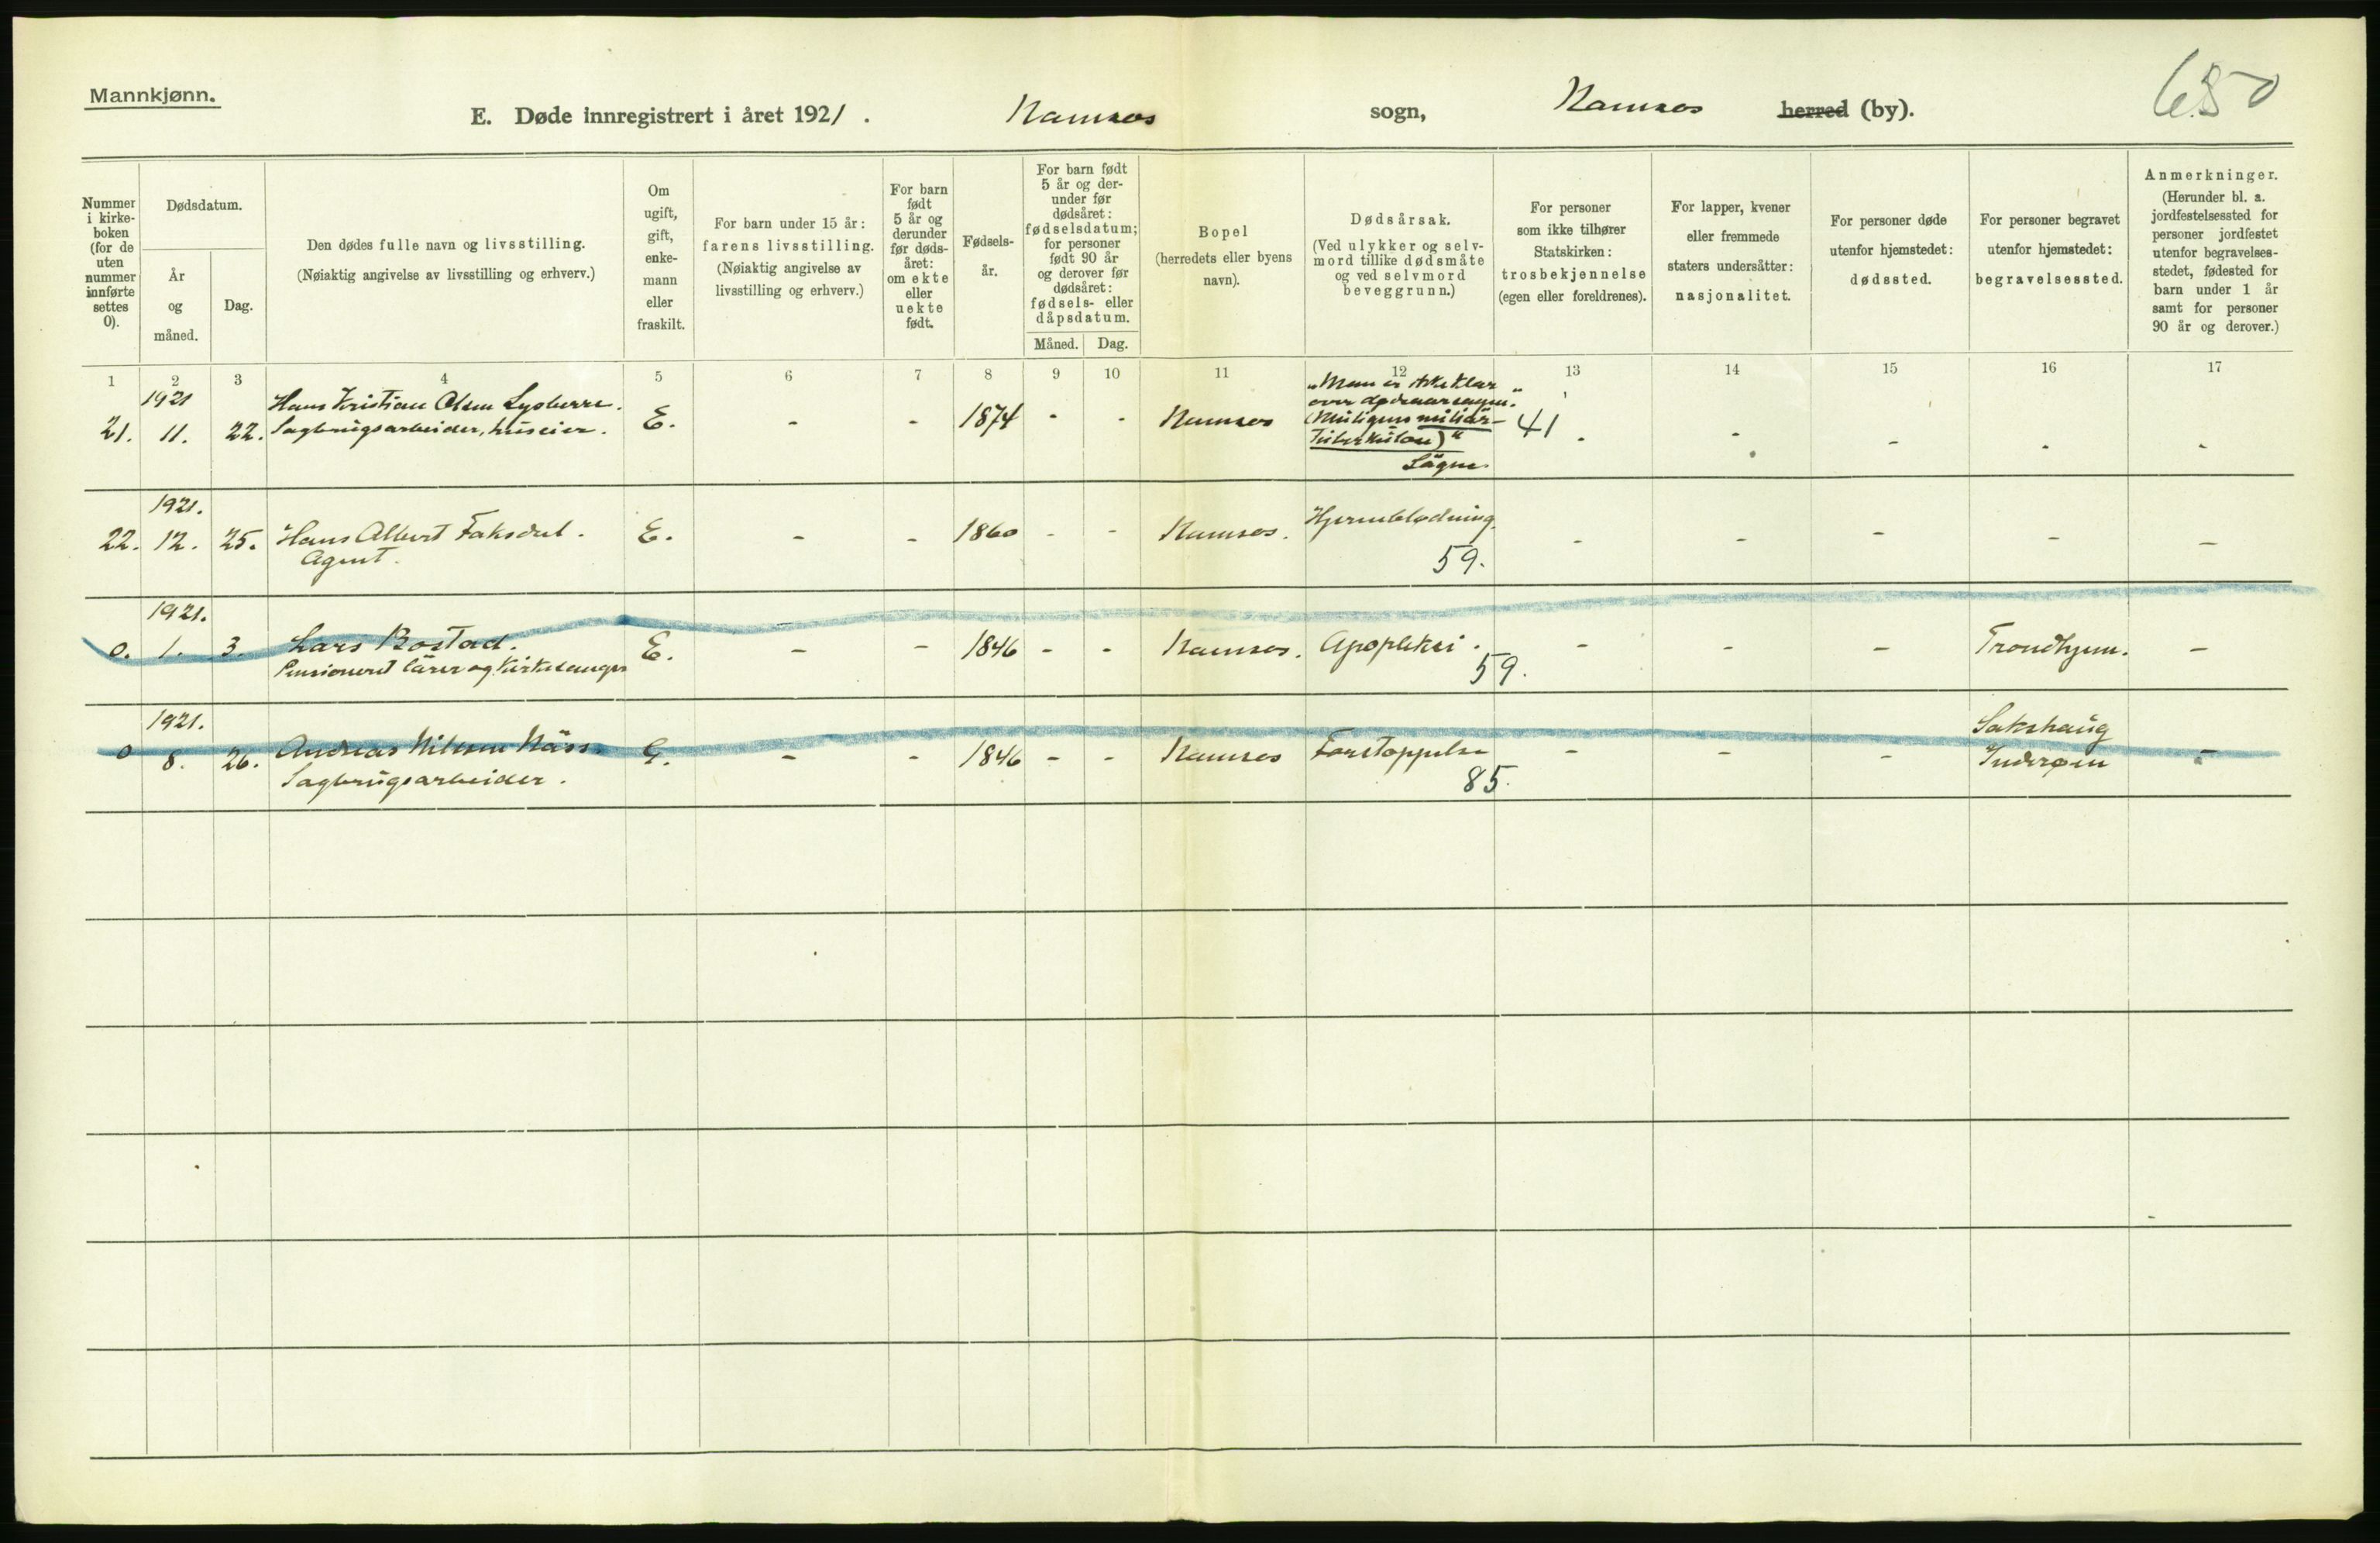 Mannkjønn.
E. Døde innregistrert i året 1921. Namsos sogn, Namsos herred (by).
650
Nummer i kirkeboken (for de uten nummer innførte settes 0).
Dødsdatum.
År og måned.
Dag.
Den dødes fulle navn og livsstilling.
(Nøiaktig angivelse av livsstilling og erhverv.)
Om ugift, gift, enkemann eller fraskilt.
For barn under 15 år: farens livsstilling.
(Nøiaktig angivelse av livsstilling og erhverv.)
For barn født 5 år og derunder før dødsåret: om ekte eller uekte født.
Fødselsår.
For barn født 5 år og derunder før dødsåret: fødselsdatum; for personer født 90 år og derover før dødsåret: fødsels- eller dåpsdatum.
Måned. Dag.
Bopel
(herredets eller byens navn).
Dødsårsak.
(Ved ulykker og selvmord tillike dødsmåte og ved selvmord beveggrunn.)
For personer som ikke tilhører Statskirken: trosbekjennelse (egen eller foreldrenes).
For lapper, kvener eller fremmede staters undersåtter: nasjonalitet.
For personer døde utenfor hjemstedet: dødssted.
For personer begravet utenfor hjemstedet: begravelsessted.
Anmerkninger.
(Herunder bl. a. jordfestelsessted for personer jordfestet utenfor begravelsesstedet, fødested for barn under 1 år samt for personer 90 år og derover.)
1 2 3 4 5 6 7 8 9 10 11 12 13 14 15 16 17
1921
21. 11. 22. Hans Kristian Olsen E. - - 1874 - - Namsos
Sagbrugsarbeider, huseier.
"Man er ikke klar
over dødsaarsagen."
(Muligens miliær-
Tuberkulose)"
41. - - - -
1921.
22. 12. 25. Hans Albert Faksdal. E. - - 1860 - - Namsos. Hjerneblødning. - - - - -
Agent.
59.
1921.
0. 1. 3. Lars Bostad. E. - - 1846 - - Namsos. Apopleksi. - - - Trondhjem. -
Pensioneret lærer og Kirkesanger
59.
1921.
0 8. 26. Andreas Nilssen Näss G. - - 1846 - - Namsos Forstoppelse - - - Sakshaug -
Sagbrugsarbeider. Inderøen
85.